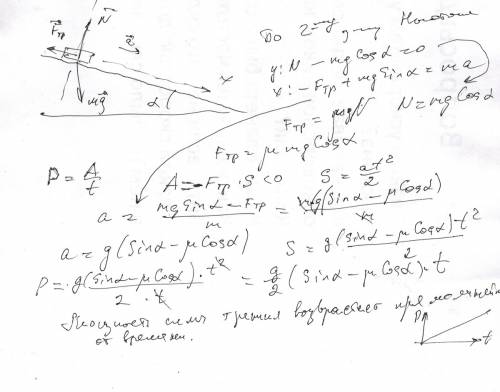 По 2-му з-ну Ньютона
y: N − mg Cosα = 0
x: −Fтр + mg Sinα = ma
Fтр = μN   N = mg Cosα
Fтр = μ mg Cosα
P = A/t   A = −Fтр · S < 0   S = at²/2
a = (mg Sinα − Fтр)/m = mg(Sinα − μ Cosα)/m
a = g(Sinα − μ Cosα)   S = g(Sinα − μ Cosα)·t²/2
P = g(Sinα − μ Cosα)·t²/(2·t) = g/2 (Sinα − μ Cosα)·t
Мощность силы трения возрастает прямолинейно
от времени.
N
Fтр
a
x
mg
α
P
t